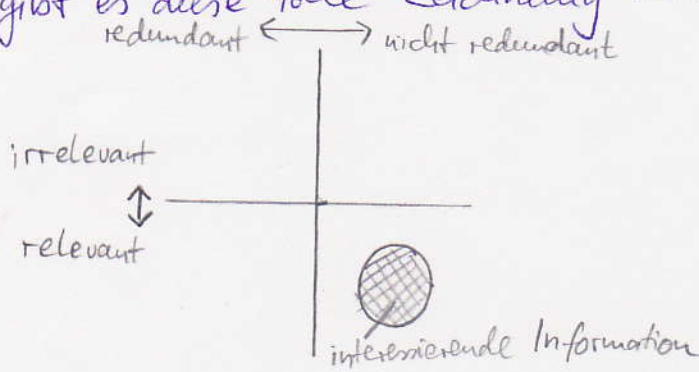 gibt es diese tolle Zeichnung
redundant ⟷ nicht redundant
irrelevant
↕
relevant
interessierende Information